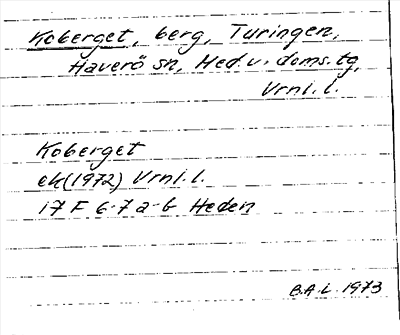 Koberget, berg, Turingen,
Haverö sn, Med.v. doms.tg,
Vrnl.l.
Koberget
ek(1972) Vrnl.l.
17 F 6-7 a-b Heden
B.A.L. 1973